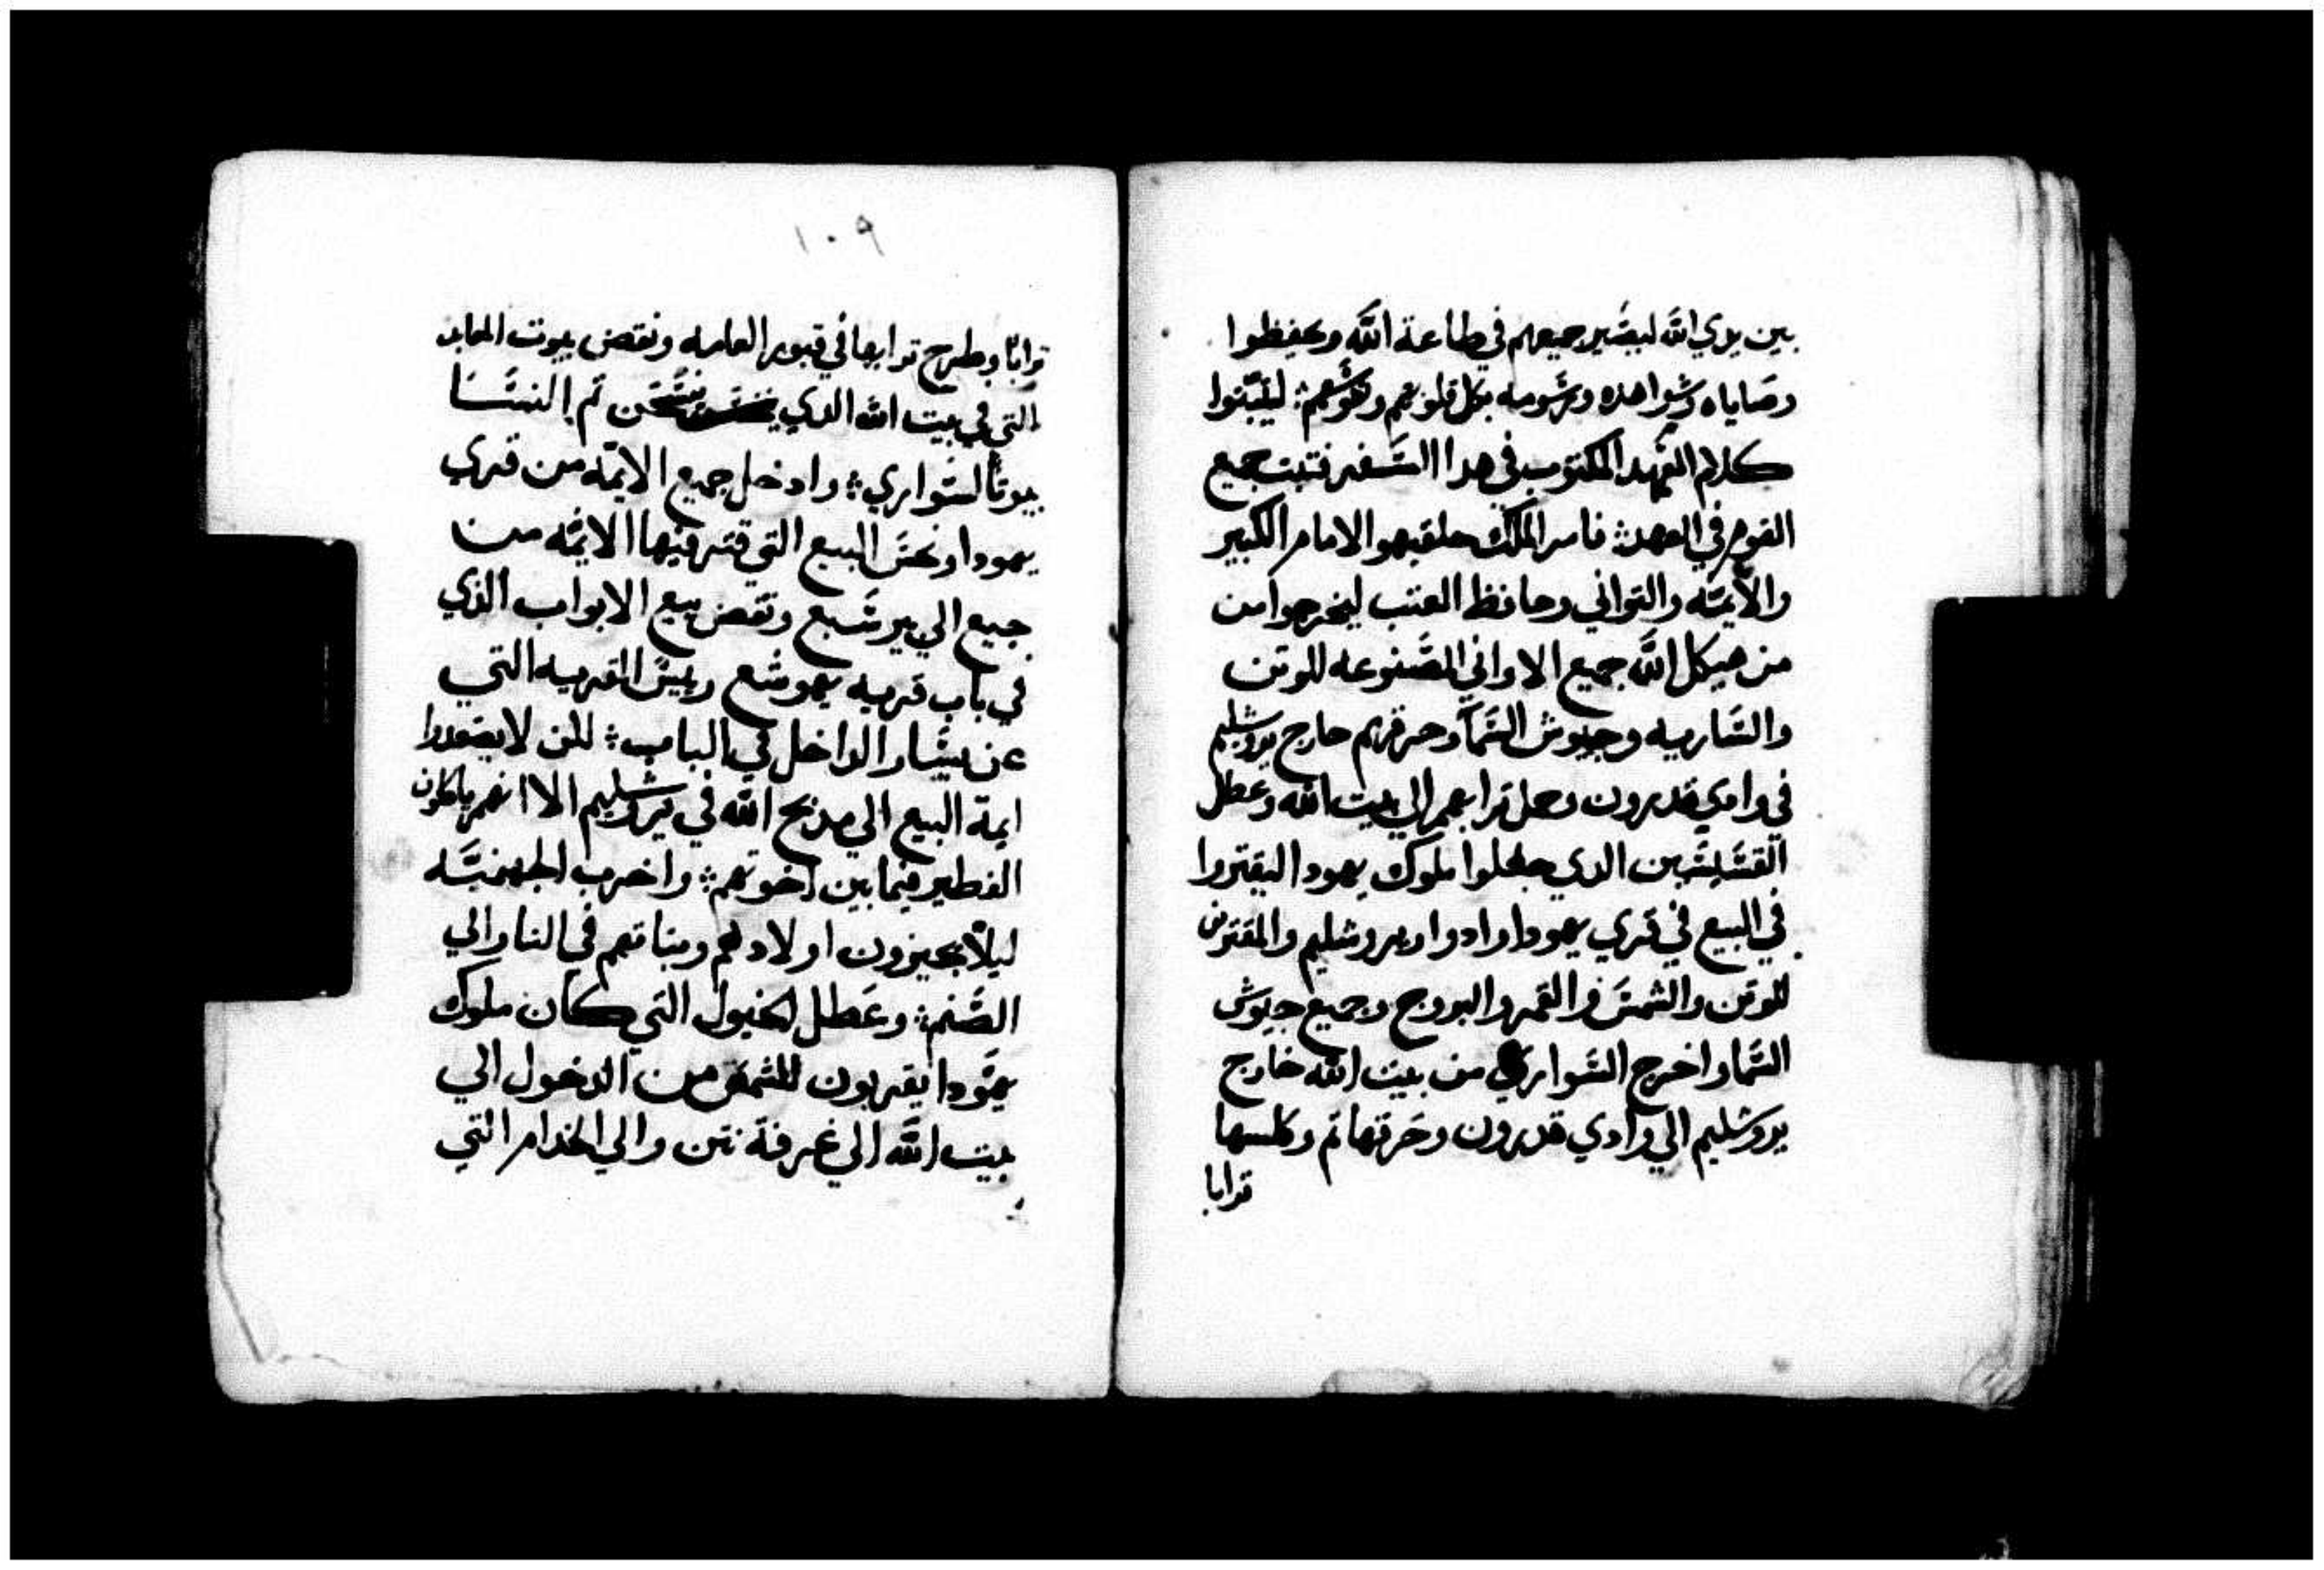 بين يدي الله ليصير جميعهم في طاعة الله ويحفظوا
وصاياه وشواهده ورسومه بكل قلوبهم ونفوسهم ليثبتوا
كلام العهد المكتوب في هدا السفر فتبت جميع
القوم في العهد فامر الملك حلقيهو الامام الكبير
والايمة والتواني وحافظ العتب ليخرجوا من
من هيكل الله جميع الاواني المصنوعه للوتن
والساريه وجيوش السما وحرقهم خارج يروشليم
في وادي قدرون وحمل ترابهم الي بيت الله وعطل
الدي جعلوا ملوك يهودا ليقتروا
في البيع في قري يهودا وادوار يروشليم والمقترين
للوتن والشمس والقمر والبروج وجميع جيوش
السما واخرج السواري من بيت الله خارج
يروشليم الي وادي قدرون وحرقها تم وكلسها
ترابا
١٠٩
ترابا وطرح ترابها في قبور العامه ونقض بيوت المعابد
التي في بيت الله الدي تم النسا
بيوتا لسواري وادخل جميع الايمه من قري
يهودا ونجس البيع التي قتر فيها الايمه من
جبع الي بير شبع ونقض بيع الابواب الذي
في باب قريه يهوشع ريس القريه التي
عن يسار الداخل في الباب لكن لا يصعدوا
ايمة البيع الي مذبح الله في يروشليم الا انهم ياكلون
الفطير فيما بين اخوتهم واخرب
ليلا يجيزون اولادهم وبناتهم في النار الي
الصنم وعطل الخيول التي كان ملوك
يهودا يقربون للشمس من الدخول الي
بيت الله الي غرفة نتن والي الخدام التي